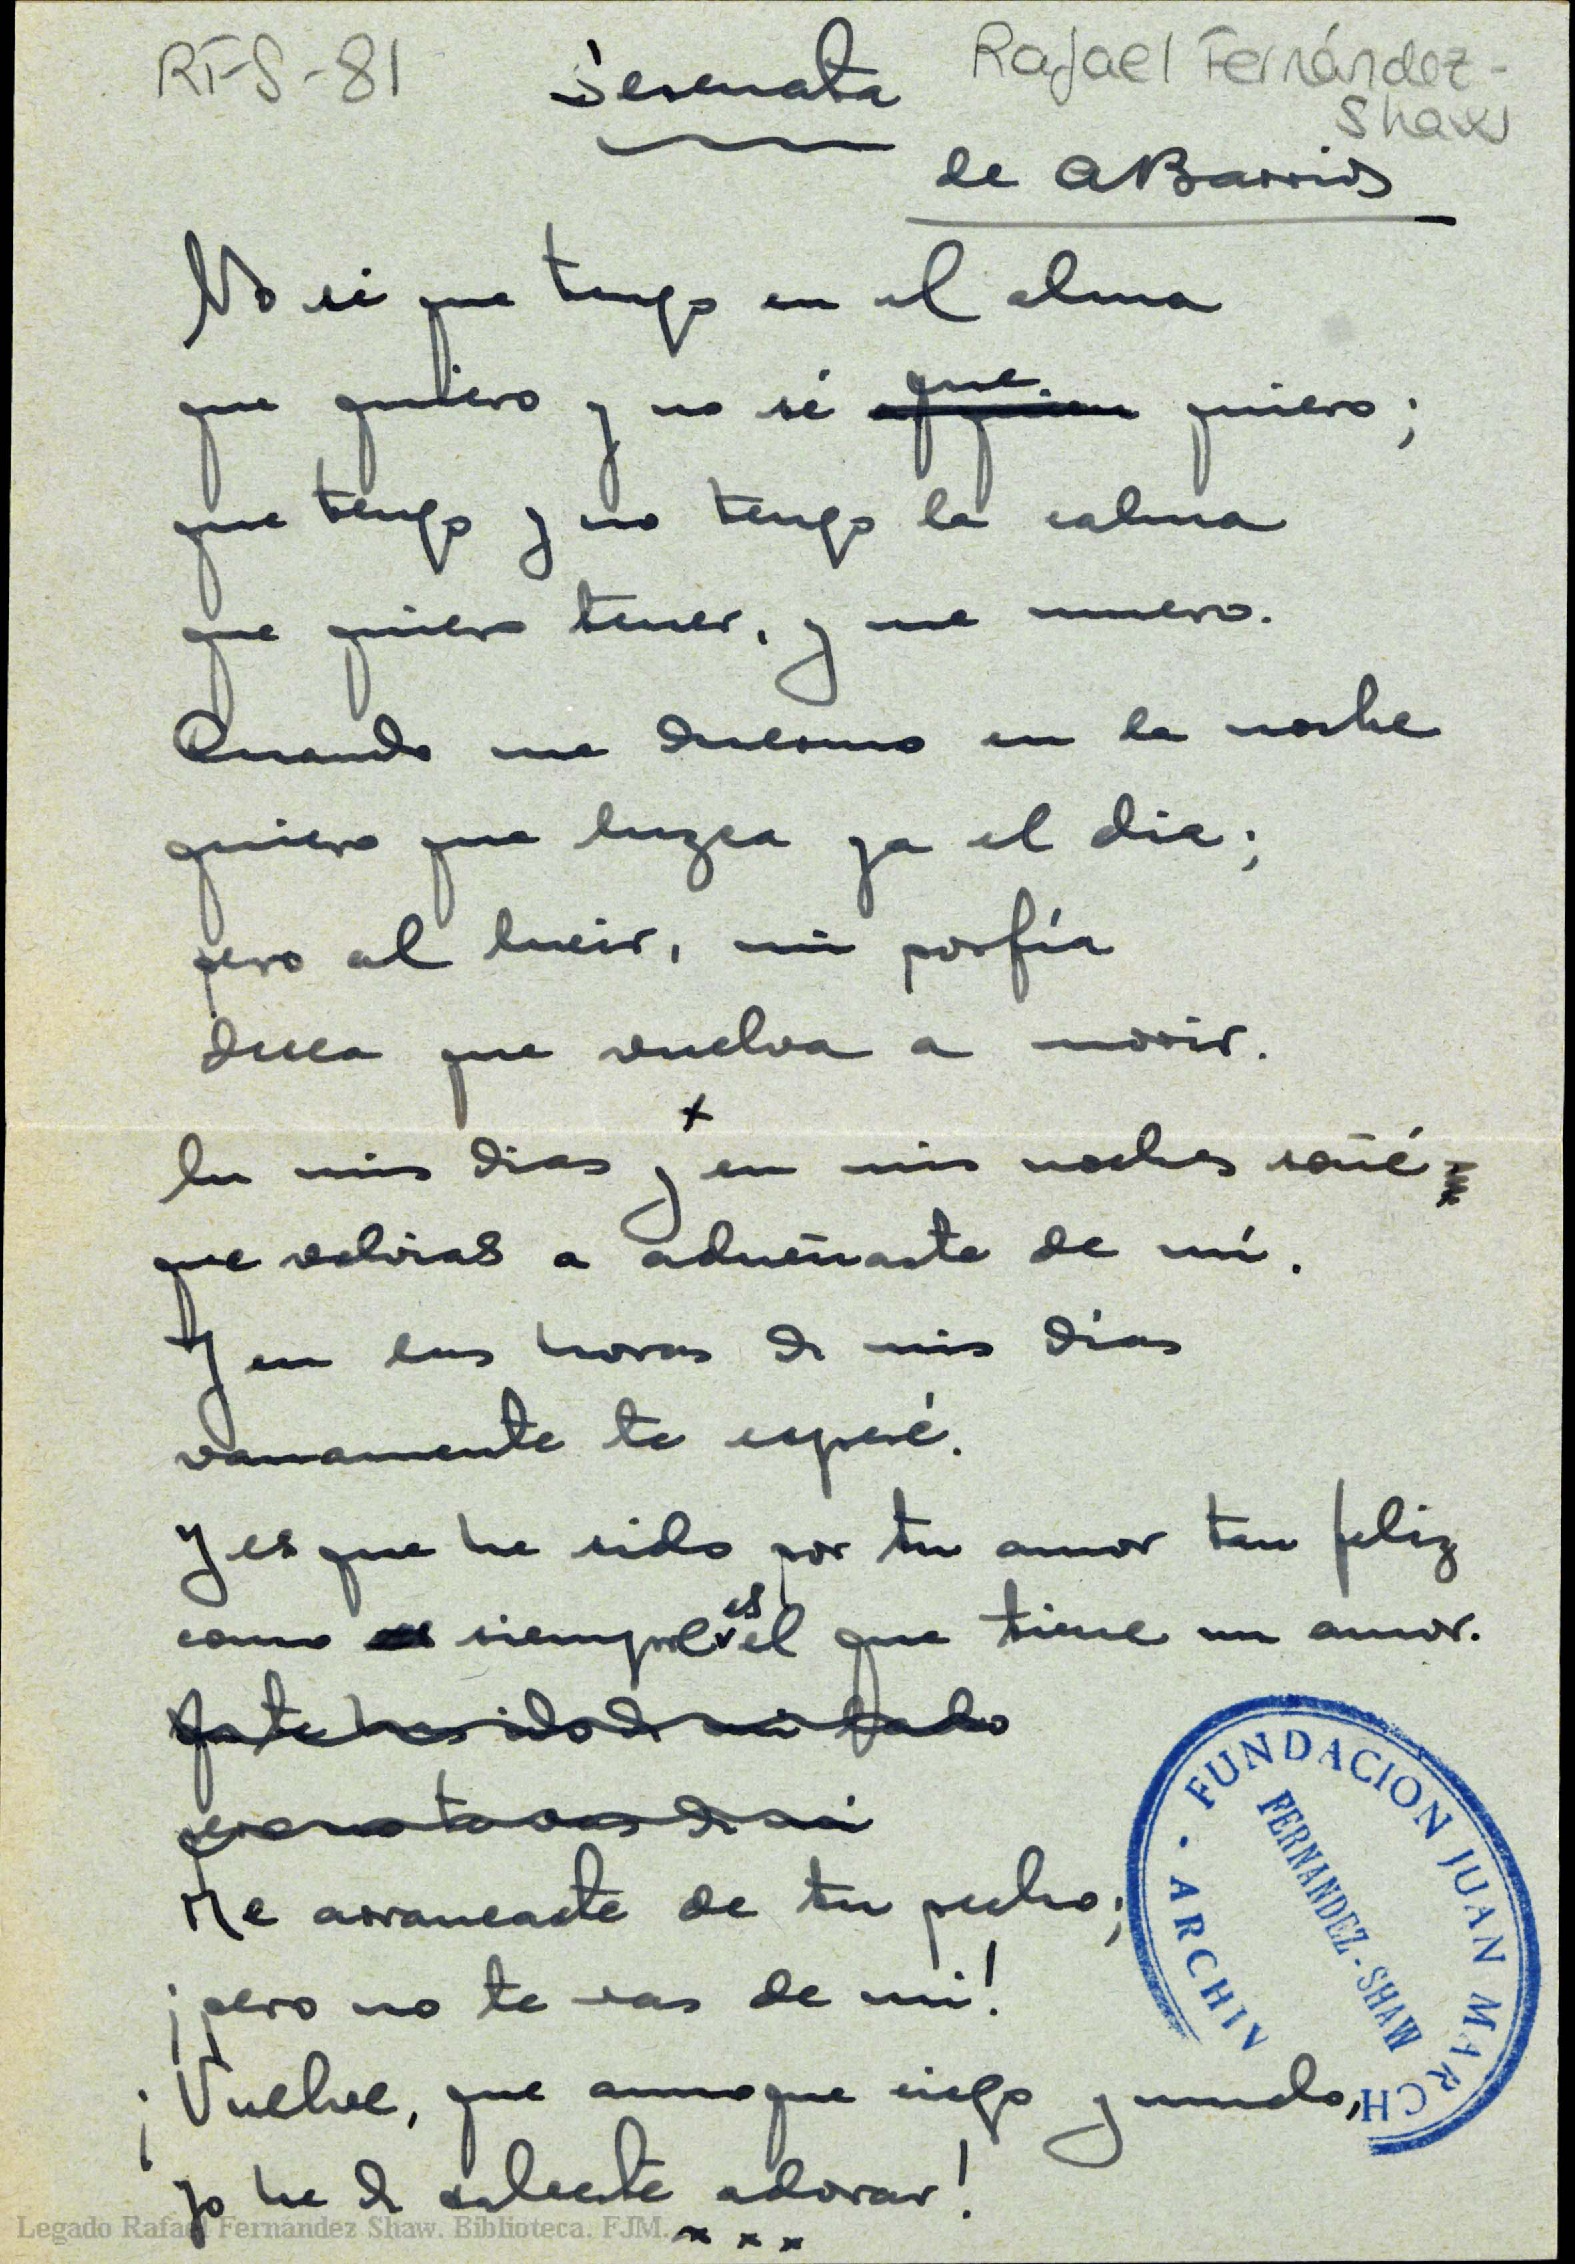 RFS-81
Serenata
Rafael Fernández-
Shaw
de A Barrios
No sé que tengo en el alma
que quiero y no sé que quiero;
que tengo y no tengo la calma
que quiero tener, y me muero.
Cuando me duermo en la noche
quiero que luzca ya el dia;
pero al lucir, mi porfía
desea que vuelva a morir.
x
En mis dias y en mis noches soñé
que volvias a adueñarte de mí.
Y en las horas de mis días
vanamente te esperé.
Y es que he sido por tu amor tan feliz
como siempre es el que tiene un amor.
Ya te has ido de mi lado
pero no te vas de mi
Me arrancaste de tu pecho;
¡pero no te vas de mi!
¡Vuelve, que aunque ciego y mudo,
yo he de saberte adorar!
x x x
FUNDACION JUAN MARCH
FERNANDEZ-SHAW
· ARCHIV
Legado Rafael Fernández Shaw. Biblioteca. FJM.